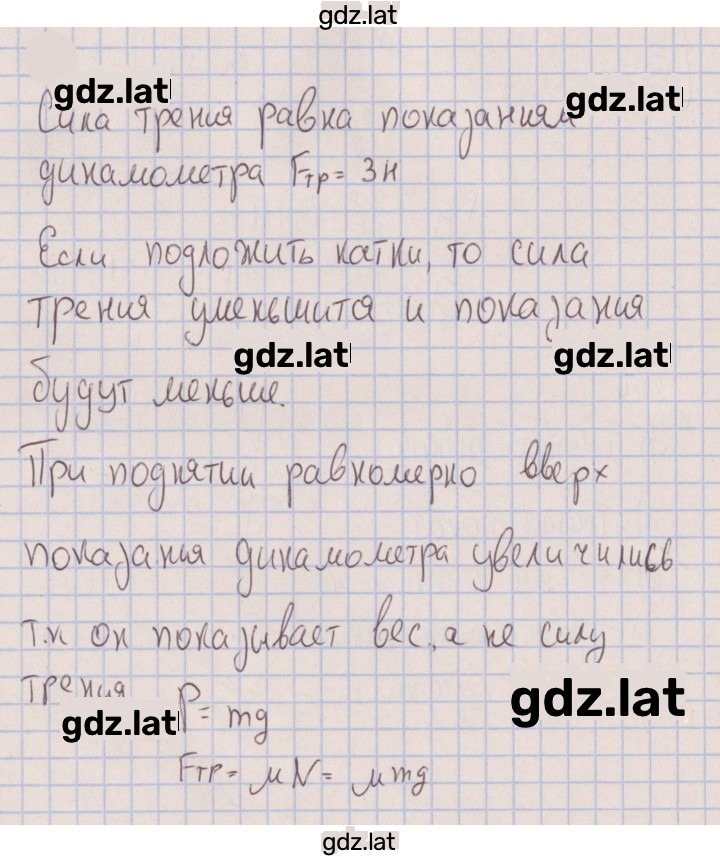 gdz.lat
gdz.lat
gdz.lat
Сила трения равна показаниям
динамометра Fтр = 3Н
Если подложить катки, то сила
трения уменьшится и показания
gdz.lat
gdz.lat
будут меньше.
При поднятии равномерно вверх
показания динамометра увеличились
т.к он показывает вес, а не силу
трения
gdz.lat
gdz.lat
P = mg
Fтр = μN = μmg
gdz.lat